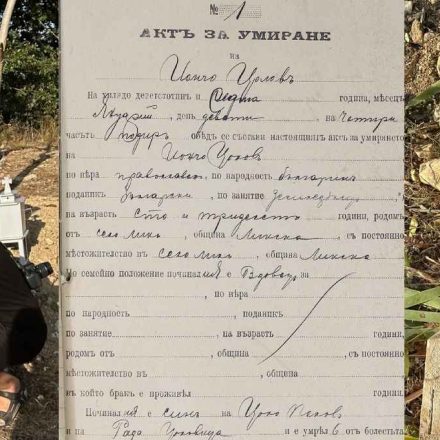 № 1
АКТЪ ЗА УМИРАНЕ
на
Йончо Урловъ
На хилядо деветстотинъ и година, месецъ
Януарий, день девети на четири
часътъ подиръ обѣдъ се състави настоящиятъ актъ за умирането
на Йончо
по вѣра православенъ, по народность българинъ
поданикъ български, по занятие земледѣлецъ,
на възрасть сто и тридесеть години, родомъ
отъ село Лика, община Ликска, съ постоянно
мѣстожителство въ село Лика, община Ликска
По семейно положение починалия е вдовецъ за
, по вѣра
по народность, поданикъ
по занятие, на възрасть години
родомъ отъ, община съ постоянно
мѣстожителство въ община
въ който бракъ е проживѣл години.
Починалия е синъ на Цоко
и на Рада и е умрѣлъ отъ болесть